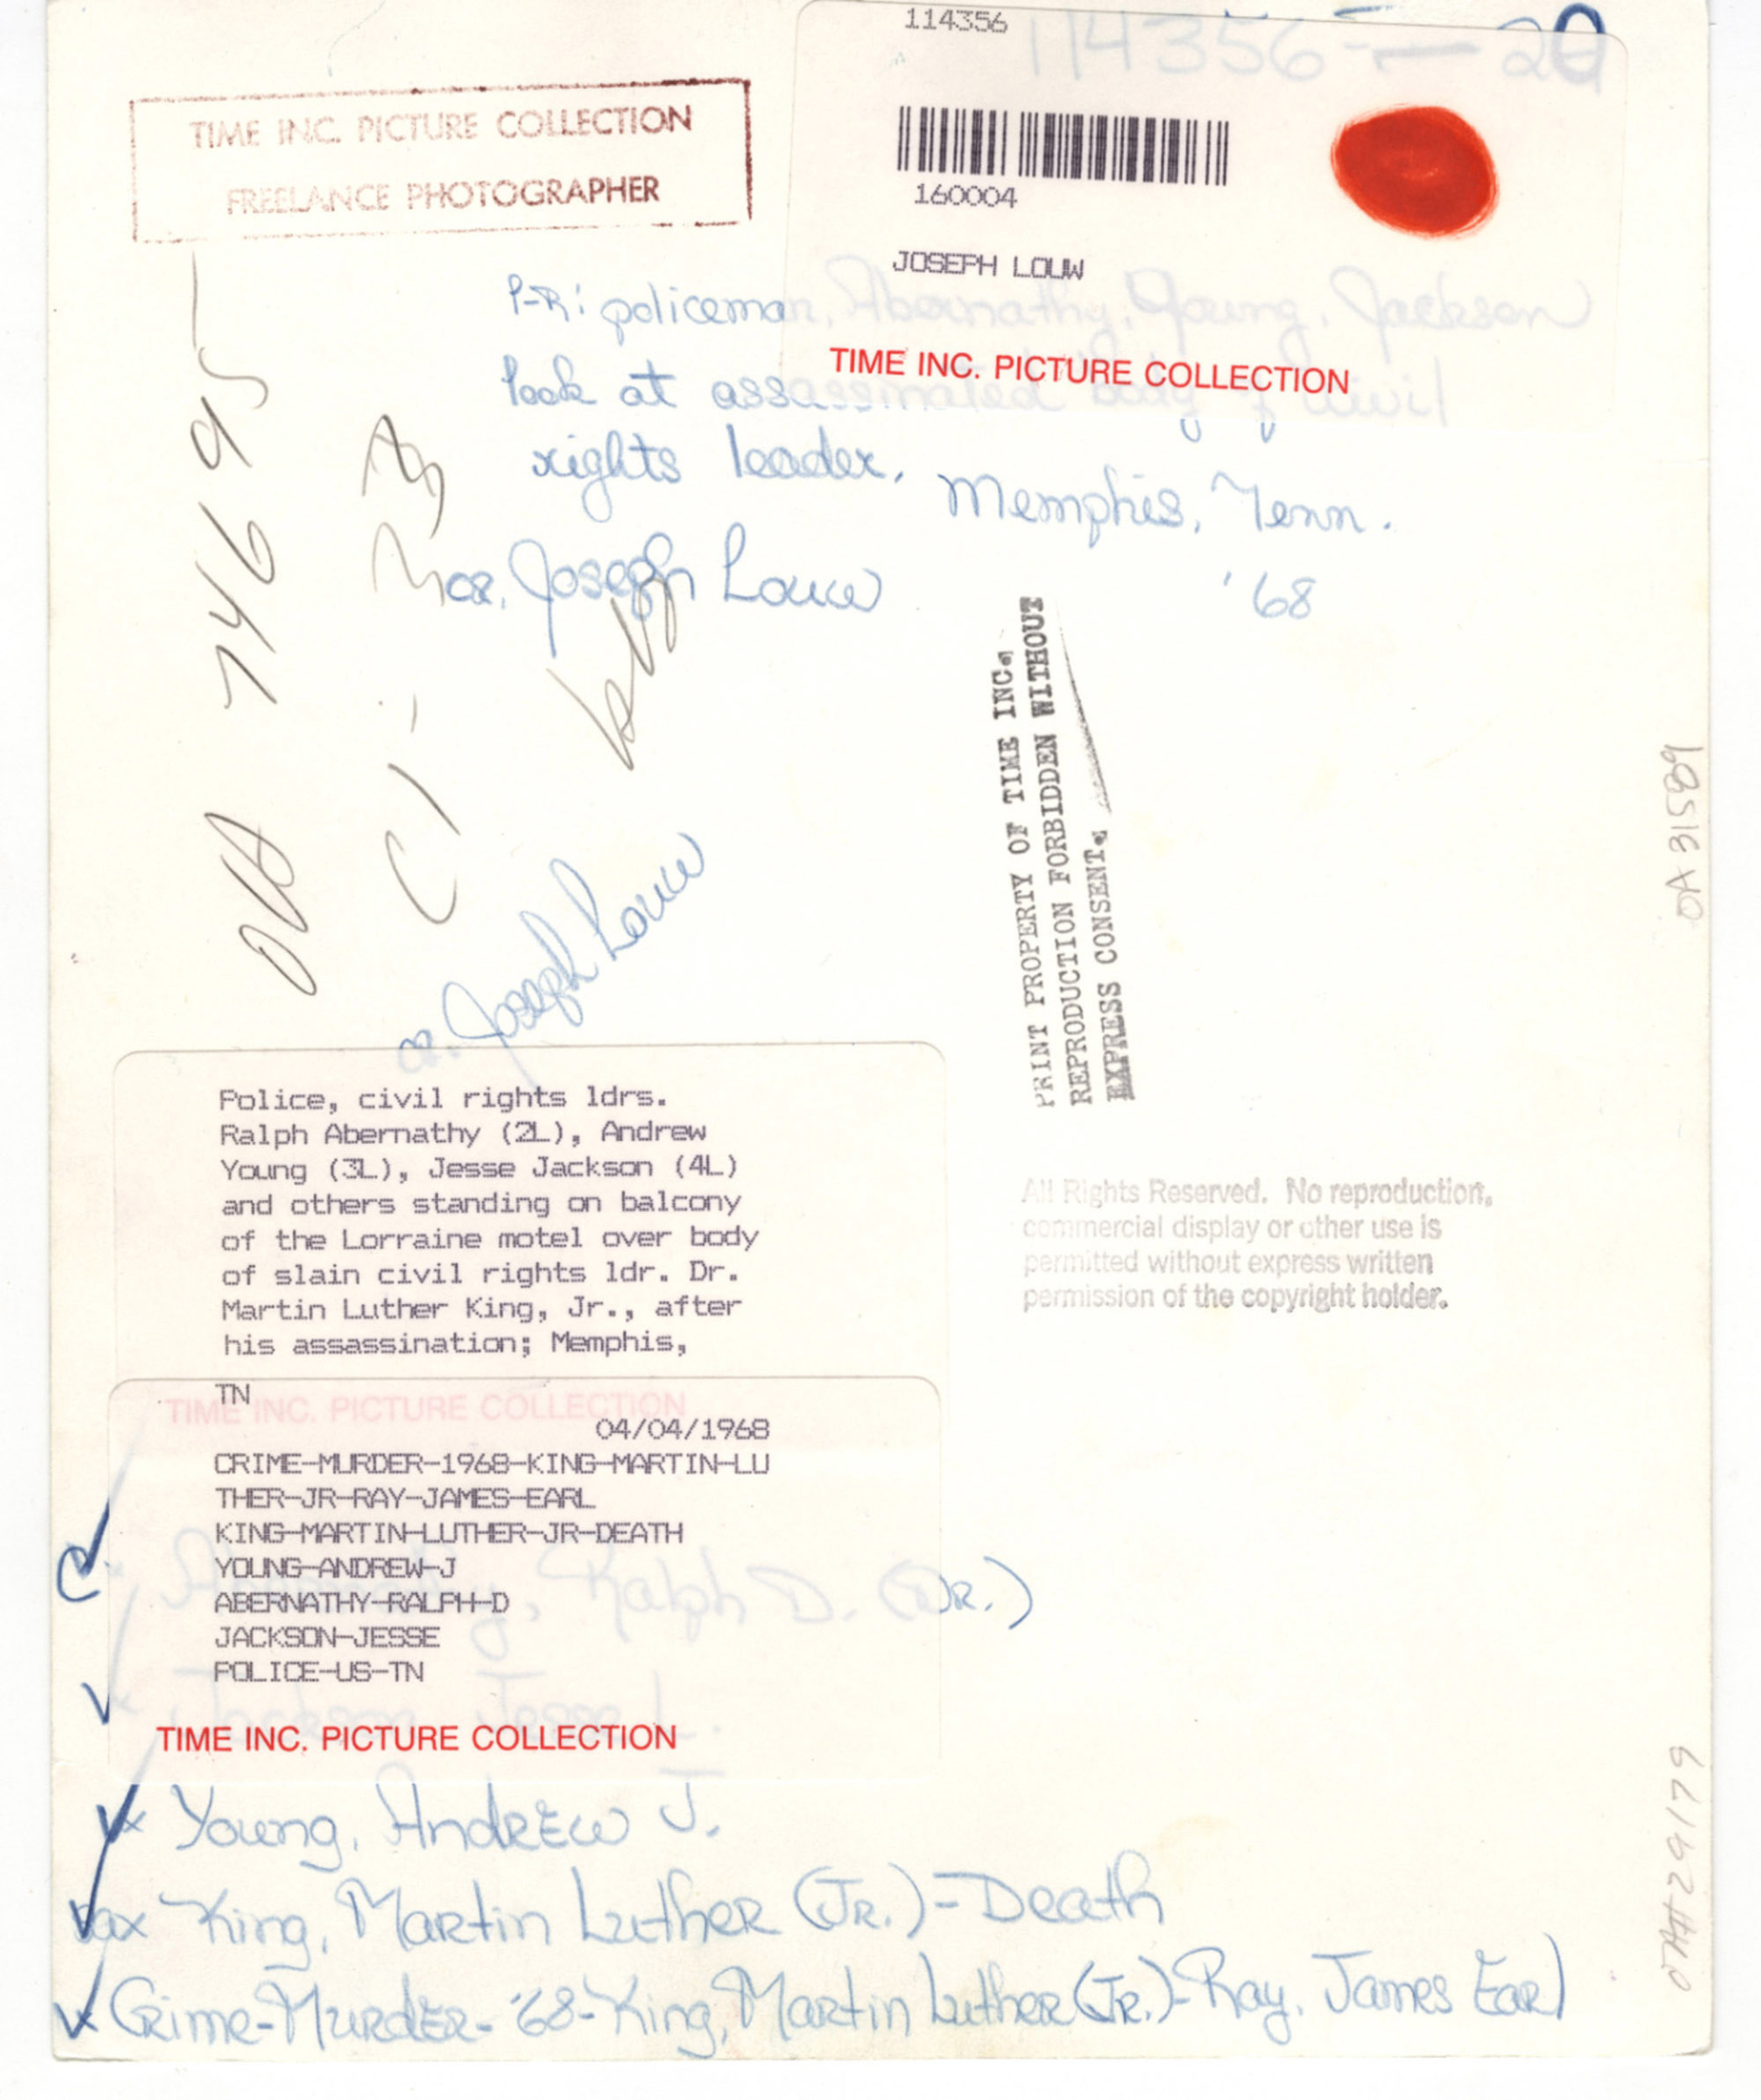 114356
114356-20
TIME INC. PICTURE COLLECTION
FREELANCE PHOTOGRAPHER
160004
JOSEPH LOUW
TIME INC. PICTURE COLLECTION
l-R: policeman, Abernathy, Young, Jackson
look at assassinated body of civil
rights leader.
Memphis, Tenn.
'68
cr. Joseph Louw
OTA 74695
C1-
cr. Joseph Louw
PRINT PROPERTY OF TIME INC.
REPRODUCTION FORBIDDEN WITHOUT
EXPRESS CONSENT.
Police, civil rights ldrs.
Ralph Abernathy (2L), Andrew
Young (3L), Jesse Jackson (4L)
and others standing on balcony
of the Lorraine motel over body
of slain civil rights ldr. Dr.
Martin Luther King, Jr., after
his assassination; Memphis,
TN
TIME INC. PICTURE COLLECTION
04/04/1968
CRIME-MURDER-1968-KING-MARTIN-LU
THER-JR-RAY-JAMES-EARL
KING-MARTIN-LUTHER-JR-DEATH
YOUNG-ANDREW-J
ABERNATHY-RALPH-D
JACKSON-JESSE
POLICE-US-TN
TIME INC. PICTURE COLLECTION
All Rights Reserved. No reproduction,
commercial display or other use is
permitted without express written
permission of the copyright holder.
x Abernathy, Ralph D. (DR.)
x Jackson, Jesse L.
x Young, Andrew J.
x King, Martin Luther (JR.)-Death
x Crime-Murder-'68-King, Martin Luther (JR.)-Ray, James Earl
OTA 81589